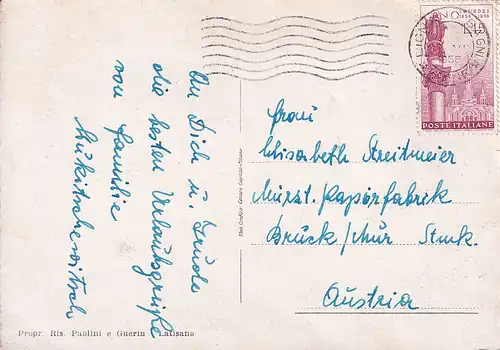 An Dich u. Trude
die besten Urlaubsgrüße
von Familie
Propr. Ris. Paolini e Guerin Latisana
Stab. Grafico Cesare Capello-Milano
LOURDES
1858 1958
POSTE ITALIANE
LIGNANO
Frau
Elisabeth Streitmeier
Mürzt. Papierfabrik
Bruck/Mur Stmk.
Austria